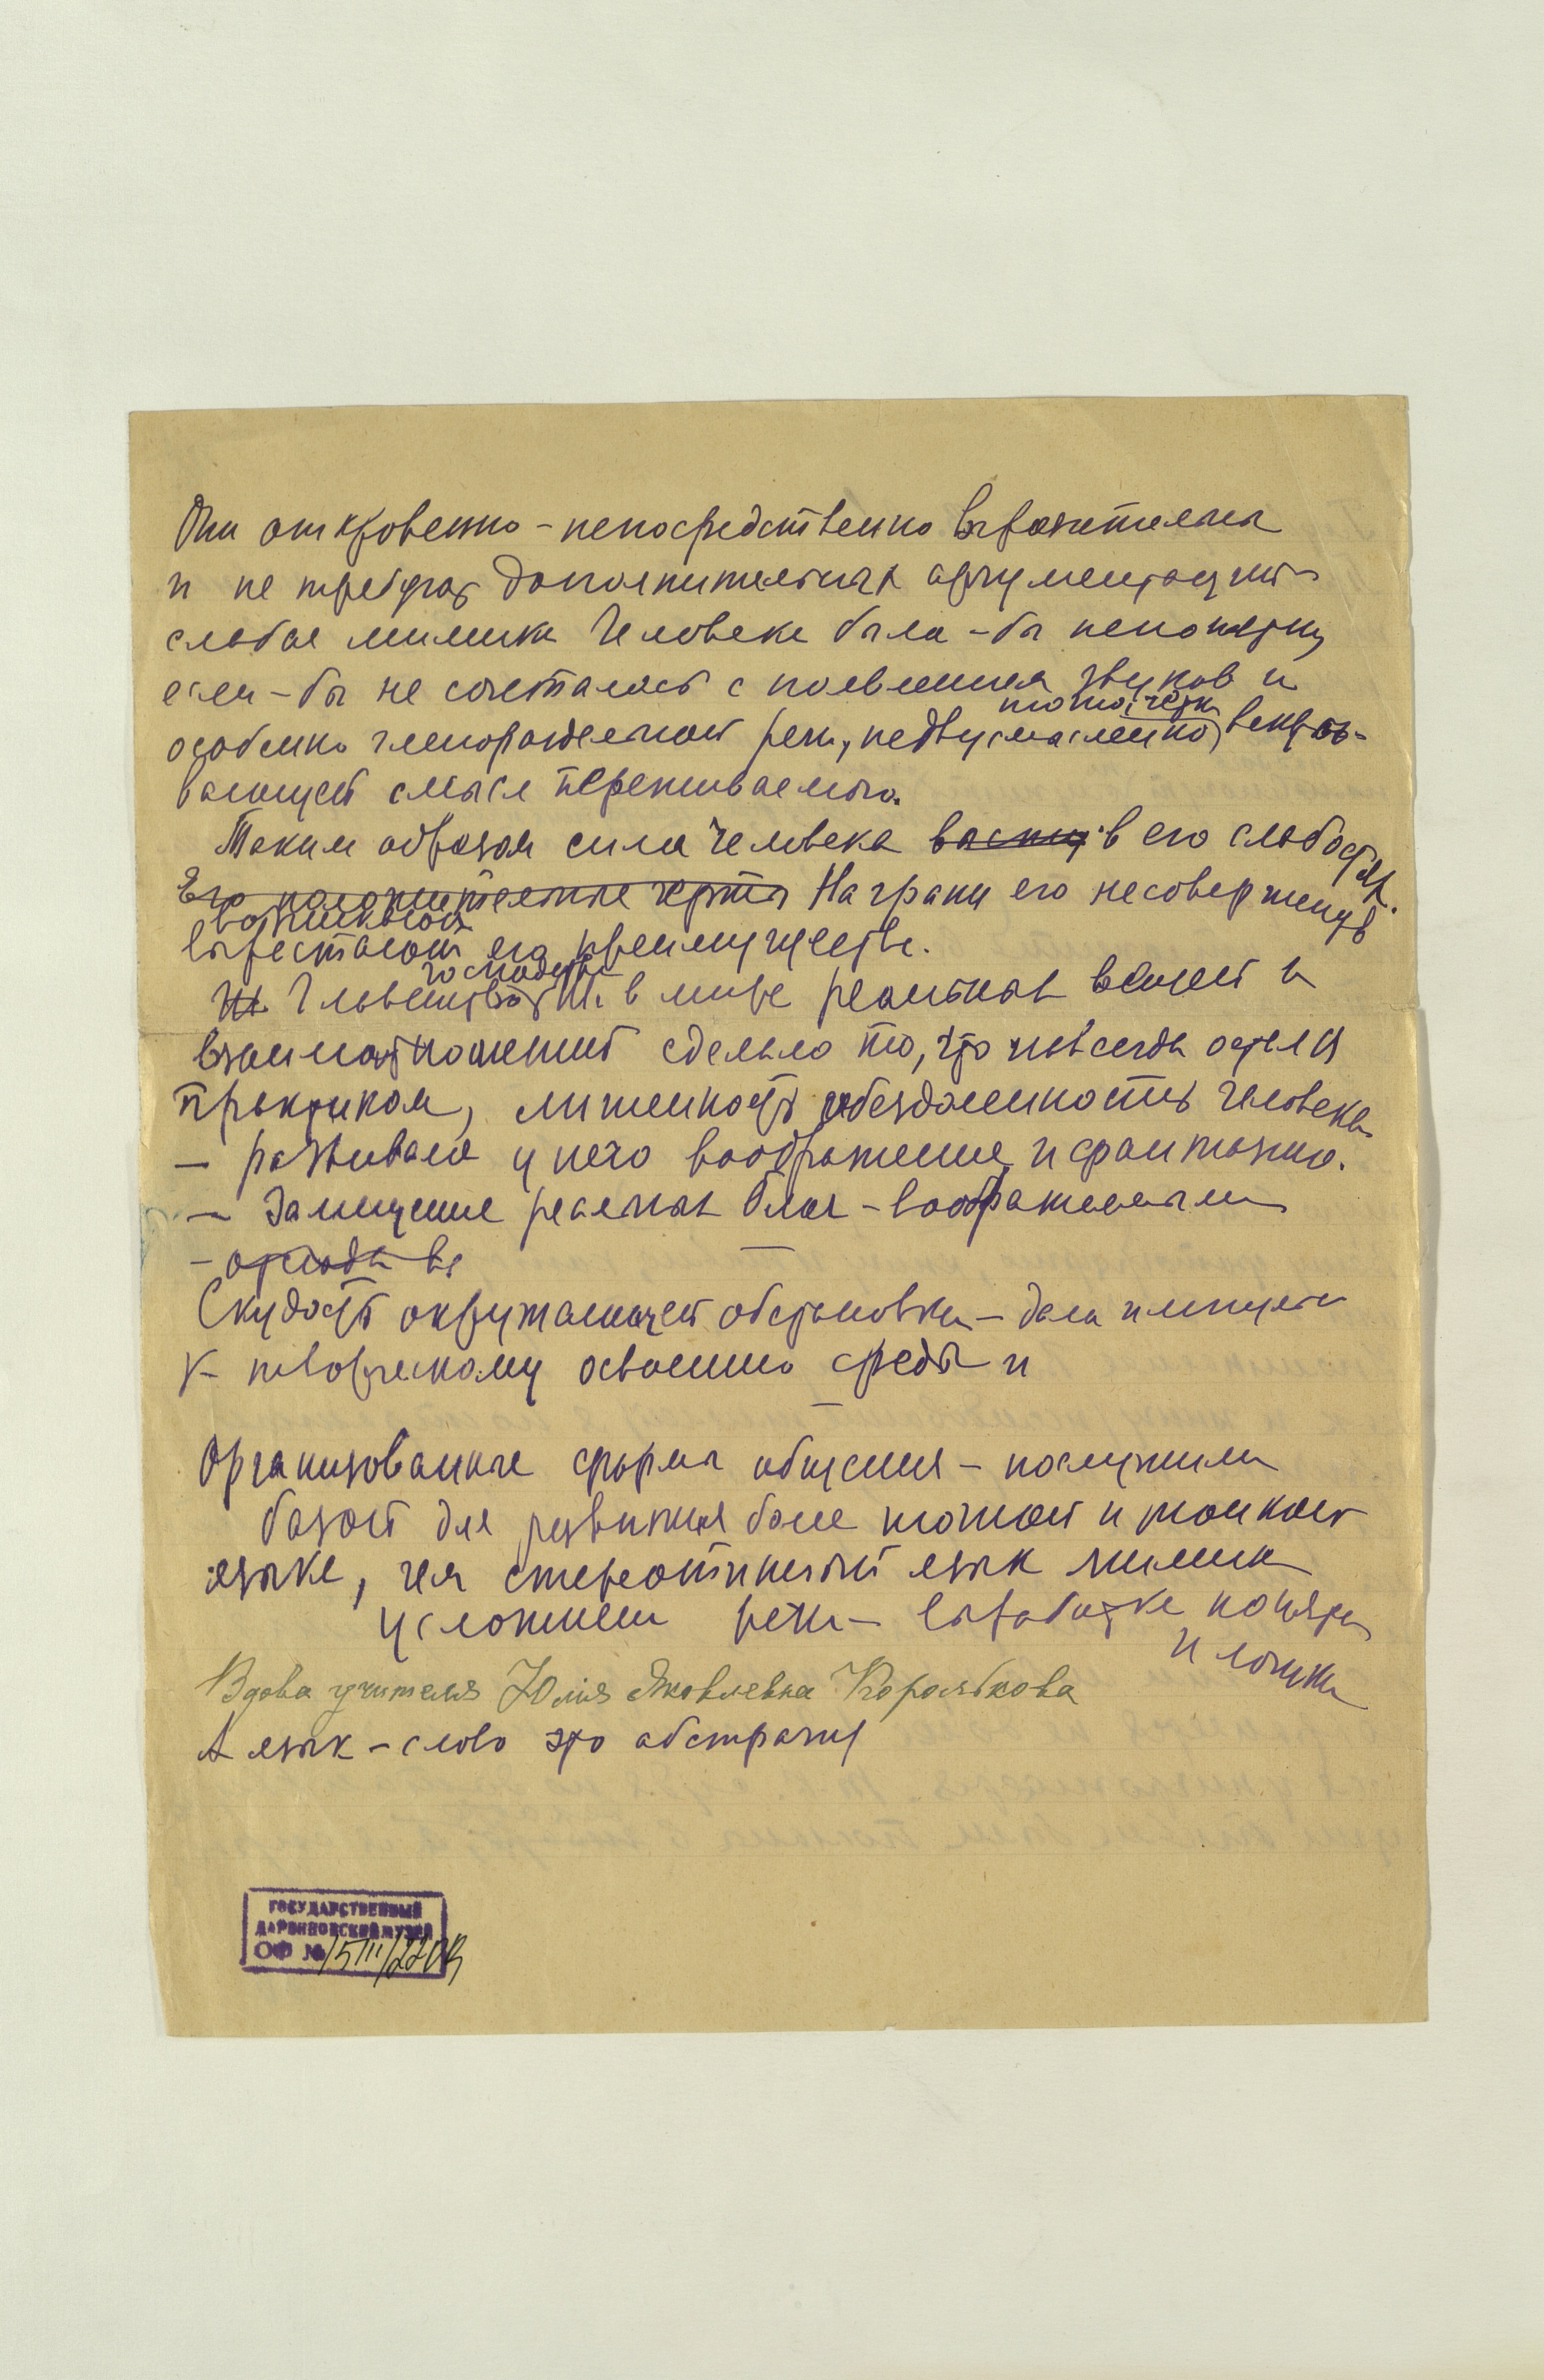 Они откровенно-непосредственно выразительны
и не требуют дополнительных аргументаций
слабая мимика Человека была-бы непонятна,
если-бы не сочеталась с появлением звуков и
точно, четко
особенно членораздельной речи, недвусмысленно, вскры-
вающей смысл переживаемого.
Таким образом сила человека в его слабостях.
Его положительные черты На грани его несовершенств
возникают
вырастают его преимущества.
господство
Главенство в мире реальных вещей и
взаимоотношений сделало то, что навсегда остался
практиком, лишенность обездоленность человека
— развивала у него воображение и фантазию.
— Замещение реальных благ - воображаемыми
- отсюда вы
Скудость окружающей обстановки — дала импульс
к творческому освоению среды и
Организованные формы общения — послужили
базой для развития более точного и тонкого
языка, чем стереотипный язык мимики
усложнен речи — выработке понятий
и логики
Вдова учителя Юлия Яковлевна Кораблкова
А язык - слово это абстракция
ГОСУДАРСТВЕННЫЙ
ДАРВИНОВСКИЙ МУЗЕЙ
ОФ №